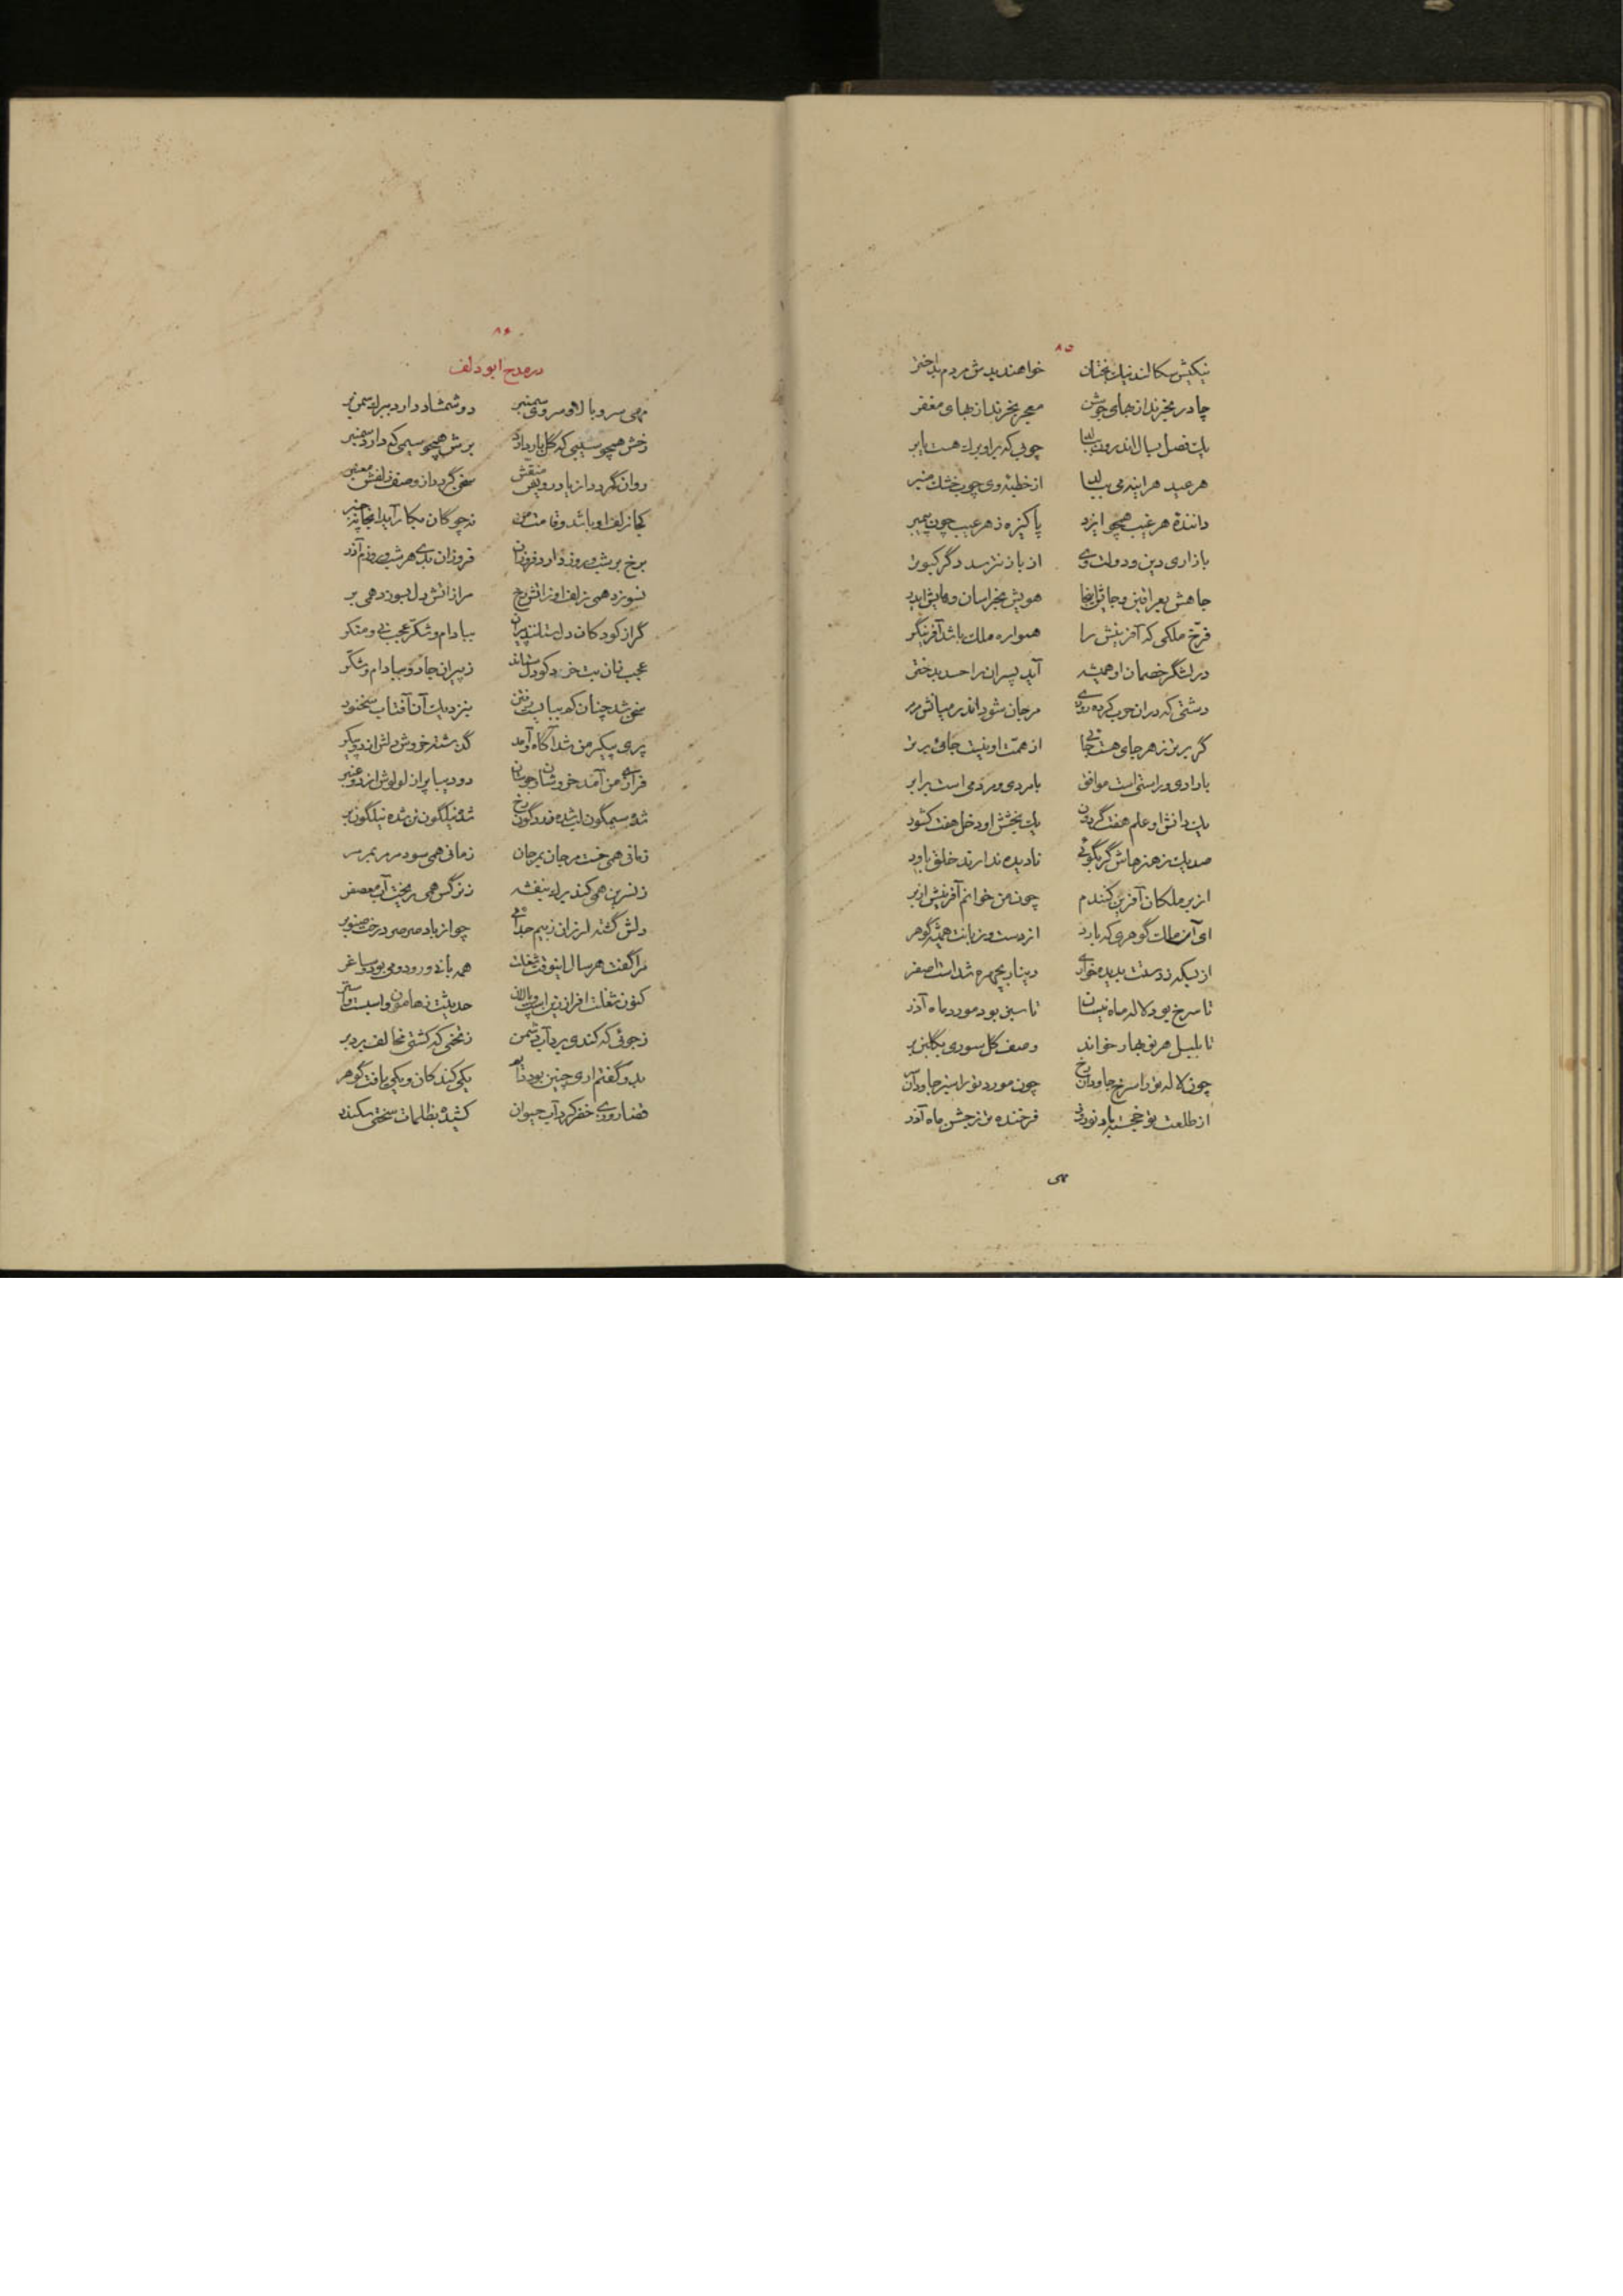 ۸۵
نیکیش سکالند نیک بختان خواهند بدش مردم بداختر
چادر بخرند از بهای جوشن معجر بخرند از بهای مغفر
یک فصل بسال اندرون چوبی که براو برک هست یا بر
هر عید هر اینه می از خطبهٔ وی چوب خشک منبر
دانندهٔ هر غیب همچو ایزد پاکیزه ز هر عیب چون پیمبر
بازاری دین و دولت وی از باز نترسد دگر کبوتر
جاهش بعراقین و جانش اینجا هوش بخراسان و
فرخ ملکی که آفرینش را همواره ملک باشد آفرینگر
در لشگر خصمان او همیشه آید پسران را حسد بدختر
دشتی که دران حرب کرده روزی مرجان شود اندر میانش مرمر
گر برتر ز هر جای هست جائی از همت او نیست جای برتر
با رادی و راستی است موافق با مردی و مردمی است برابر
یک دانش او علم هفت گردون یک بخشش او دخل هفت کشور
صد یک ز هنرهاش گر بگوئی نادیده ندارند خلق باور
از بر ملکان آفرین کنندم چون من خوانم آفرینش از بر
ای آن ملک گوهری که بارد از دست و زبانت همیشه گوهر
از بیکه ز دستت بدید خواری دینار بچهره شد است اصفر
تا سرخ بود لاله ماه نیسان تا سبز بود مورد ماه آذر
تا بلبل هر نوبهار خواند وصف گل سوری بگلبن بر
چون لاله تو را سرخ جاودان رخ چون مورد تو را سبز جاودان سر
از طلعت تو خجسته باد نوروز فرخنده تر ز جشن ماه آذر
مهی
۸۶
در مدح ابودلف
مهی سرو بالا و سروی سمنبر دو شمشاد دارد ببرک سمن بر
رخش همچو سیبی که گل بار دارد برش همچو سیمی که دارد
روان گردد از یاد رویش منقش سخن گردد از وصف زلفش معنبر
کجا زلف او باشد و قامت من نه چوگان بکار آید انجا نه چنبر
برخ بر بشب و روز دارد فروزان فروزان یکی هر شب و روزم آذر
نسوزد همی زلف او زاتش رخ مرا زاتش دل بسوزد همی بر
گر از کودکان دل ستانند پیران ببادام و شکر عجب نی و منکر
عجب زان بت خرد کو دل ستاند ز پیران جادو ببادام و شکر
سخن شد چنان که ببایست رفتن بنزدیک آن آفتاب سخنور
پری پیکر من شد آگاه و آمد گذشته خروش دلش از دو پیکر
فراز من آمد خروشان و جوشان دو دیبا پر از لولوش از دو عنبر
شده سیمگون لب شده زردگون رخ شده نیلگون تن شده نیلگون بر
زمانی همی خست مرجان بمرجان زمانی همی سود مرمر بمرمر
ز نسرین همی کند برک بنفشه ز نرگس همی ریخت آب معصفر
دلش گشته لرزان ز بیم جدائی چو از باد صرصر درخت صنوبر
مرا گفت هر سال اینوقت شغلت همه باده و رود و می بود و ساغر
کنون شغلت افزار زین است و پالان حدیثت ز هامون و اسب است و استر
ز جوئی که کندی برد آب دشمن ز تخمی که کشتی مخالف برد بر
بدو گفتم اری چنین بود تا بود یکی کند کان و یکی یافت گوهر
قضا روزی خضر کرد آب حیوان کشیده بظلمات سختی سکندر